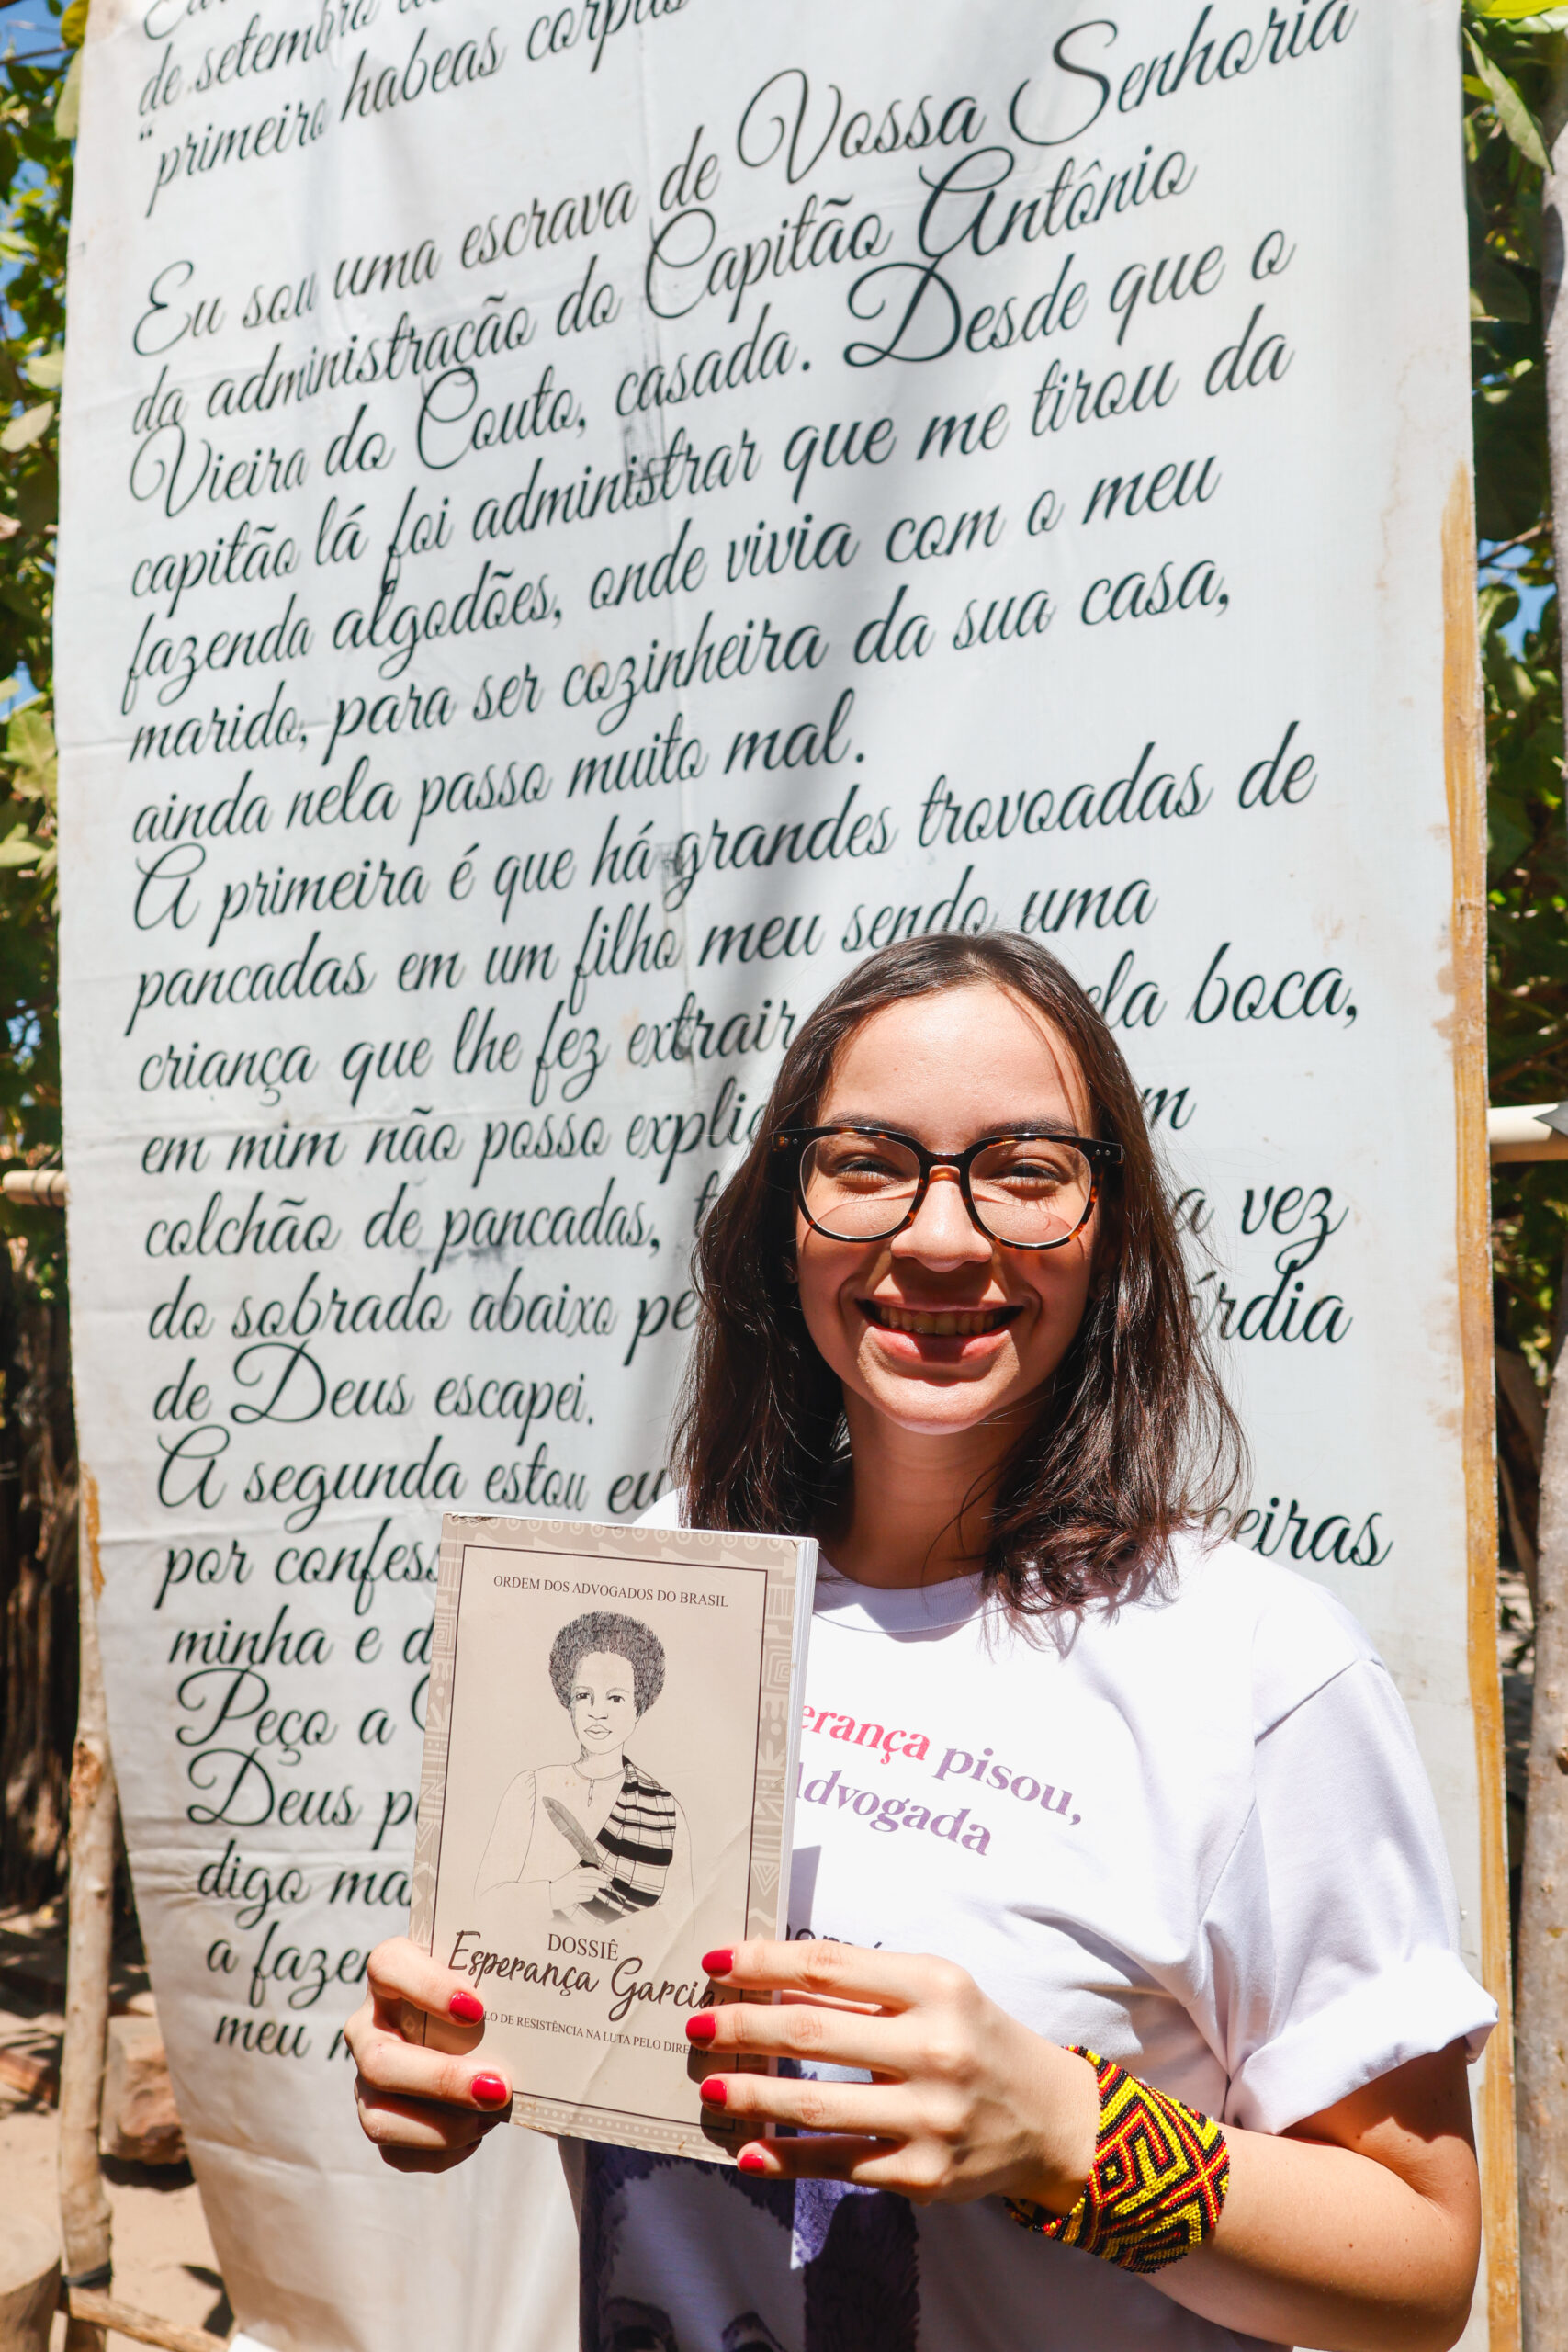 de setembro
"primeiro habeas corpus
Eu sou uma escrava de Vossa Senhoria
da administração do Capitão Antônio
Vieira do Couto, casada. Desde que o
capitão lá foi administrar que me tirou da
fazenda algodões, onde vivia com o meu
marido, para ser cozinheira da sua casa,
ainda nela passo muito mal.
A primeira é que há grandes trovoadas de
pancadas em um filho meu sendo uma
criança que lhe fez extrair ela boca,
em mim não posso explic m
colchão de pancadas, t a vez
do sobrado abaixo pe órdia
de Deus escapei.
A segunda estou eu ceiras
por confess
minha e d
Peço a
Deus p
digo ma
a fazer
meu m
ORDEM DOS ADVOGADOS DO BRASIL
DOSSIÊ
Esperança Garcia
LO DE RESISTÊNCIA NA LUTA PELO DIREI
erança pisou,
Advogada